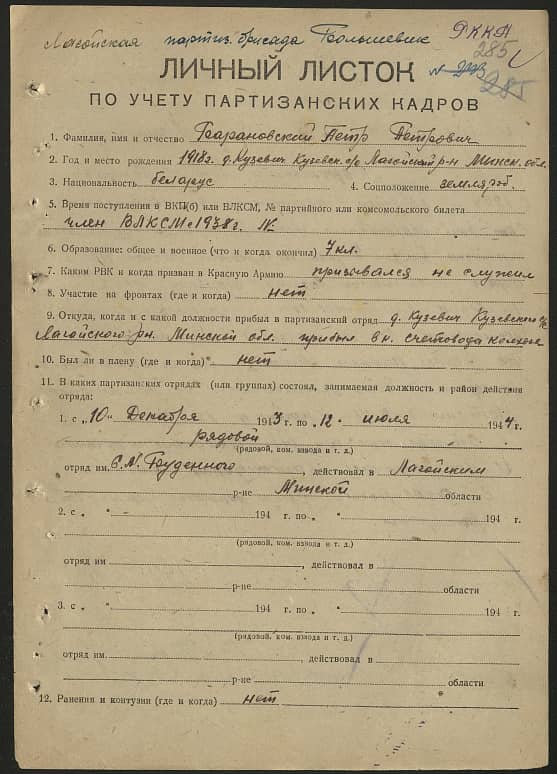 Лагойская партиз. бригада Большевик РККА
285
285
ЛИЧНЫЙ ЛИСТОК
ПО УЧЕТУ ПАРТИЗАНСКИХ КАДРОВ
1. Фамилия, имя и отчество Барановский Петр Петрович
2. Год и место рождения 1918г. д. Кузевич Кузевск. с/с Лагойский р-н Минск. обл.
3. Национальность беларус 4. Соцположение земляроб.
5. Время поступления в ВКП(б) или ВЛКСМ, № партийного или комсомольского билета
член ВЛКСМ с 1938г. №
6. Образование: общее и военное (что и когда окончил) 7 кл.
7. Каким РВК и когда призван в Красную Армию призывался не служил
8. Участие на фронтах (где и когда) нет
9. Откуда, когда и с какой должности прибыл в партизанский отряд д. Кузевич Кузевского с/с
Лагойского рн. Минской обл. прибыл в н. счетовода колхоза
10. Был ли в плену (где и когда) нет
11. В каких партизанских отрядах (или группах) состоял, занимаемая должность и район действия
отряда:
1. с „10" Декабря 1943 г. по „12" июля 1944 г.
рядовой
(рядовой, ком. взвода и т. д.)
отряд им. С.М. Буденного, действовал в Лагойским
р-не Минской области
2. с „ " 194 г. по „ " 194 г.
(рядовой, ком. взвода и т. д.)
отряд им , действовал в
р-не области
3. с „ " 194 г. по „ " 194 г.
(рядовой, ком. взвода и т. д.)
отряд им. , действовал в
р-не области
12. Ранения и контузии (где и когда) нет